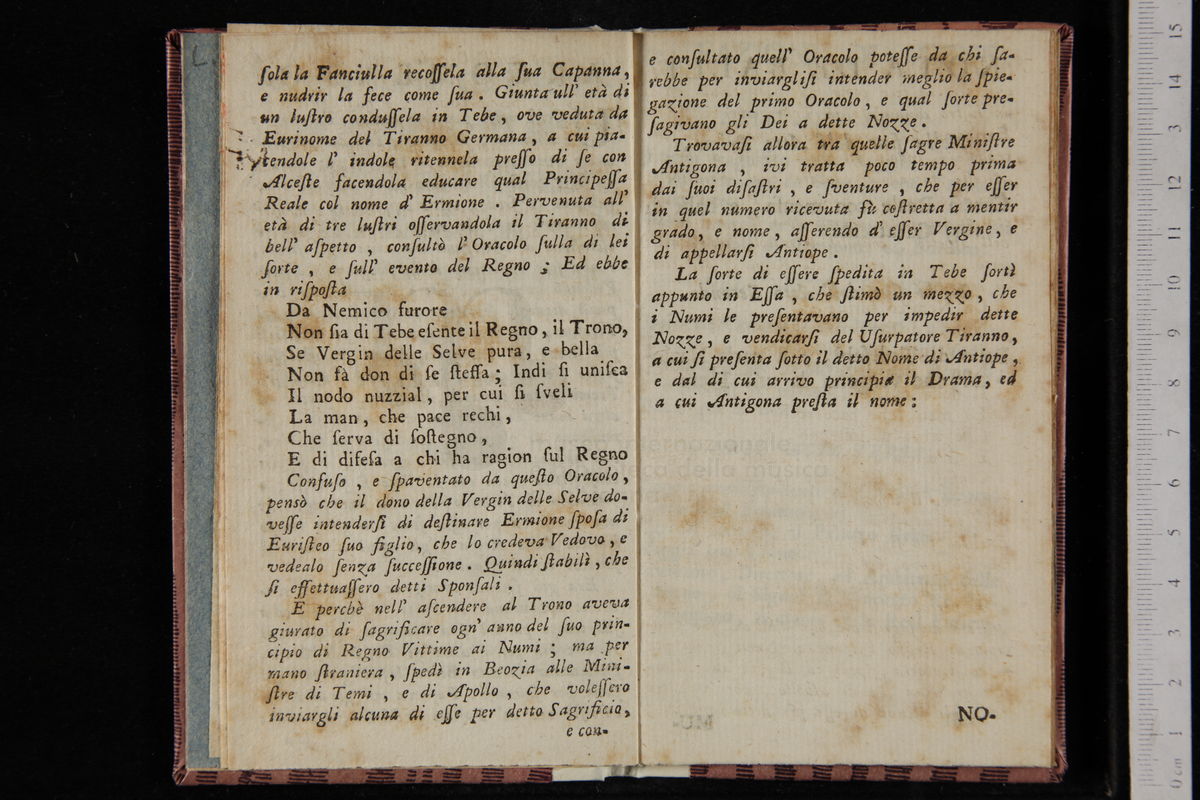 ſola la Fanciulla recoſſela alla ſua Capanna,
e nudrir la fece come ſua. Giunta all' età di
un luſtro conduſſela in Tebe, ove veduta da
Eurinome del Tiranno Germana, a cui pia-
tendole l' indole ritennela preſſo di ſe con
Alceſte facendola educare qual Principeſſa
Reale col nome d' Ermione. Pervenuta all'
età di tre luſtri oſſervandola il Tiranno di
bell' aſpetto, conſultò l' Oracolo ſulla di lei
ſorte, e ſull' evento del Regno; Ed ebbe
in riſpoſta
Da Nemico furore
Non ſia di Tebe eſente il Regno, il Trono,
Se Vergin delle Selve pura, e bella
Non fà don di ſe ſteſſa; Indi ſi uniſca
Il nodo nuzzial, per cui ſi ſveli
La man, che pace rechi,
Che ſerva di ſoſtegno,
E di difeſa a chi ha ragion ſul Regno
Confuſo, e ſpaventato da queſto Oracolo,
pensò che il dono della Vergin delle Selve do-
veſſe intenderſi di deſtinare Ermione ſpoſa di
Euriſteo ſuo figlio, che lo credeva Vedovo, e
vedealo ſenza ſucceſſione. Quindi ſtabilì, che
ſi effettuaſſero detti Sponſali.
E perchè nell' aſcendere al Trono aveva
giurato di ſagrificare ogn' anno del ſuo prin-
cipio di Regno Vittime ai Numi; ma per
mano ſtraniera, ſpedì in Beozia alle Mini-
ſtre di Temi, e di Apollo, che voleſſero
inviargli alcuna di eſſe per detto Sagrificio,
e con-
e conſultato quell' Oracolo poteſſe da chi ſa-
rebbe per inviargliſi intender meglio la ſpie-
gazione del primo Oracolo, e qual ſorte pre-
ſagivano gli Dei a dette Nozze.
Trovavaſi allora tra quelle ſagre Miniſtre
Antigona, ivi tratta poco tempo prima
dai ſuoi diſaſtri, e ſventure, che per eſſer
in quel numero ricevuta fù coſtretta a mentir
grado, e nome, aſſerendo d' eſſer Vergine, e
di appellarſi Antiope.
La ſorte di eſſere ſpedita in Tebe ſortì
appunto in Eſſa, che ſtimò un mezzo, che
i Numi le preſentavano per impedir dette
Nozze, e vendicarſi del Uſurpatore Tiranno,
a cui ſi preſenta ſotto il detto Nome di Antiope,
e dal di cui arrivo principia il Drama, ed
a cui Antigona preſta il nome:
NO-